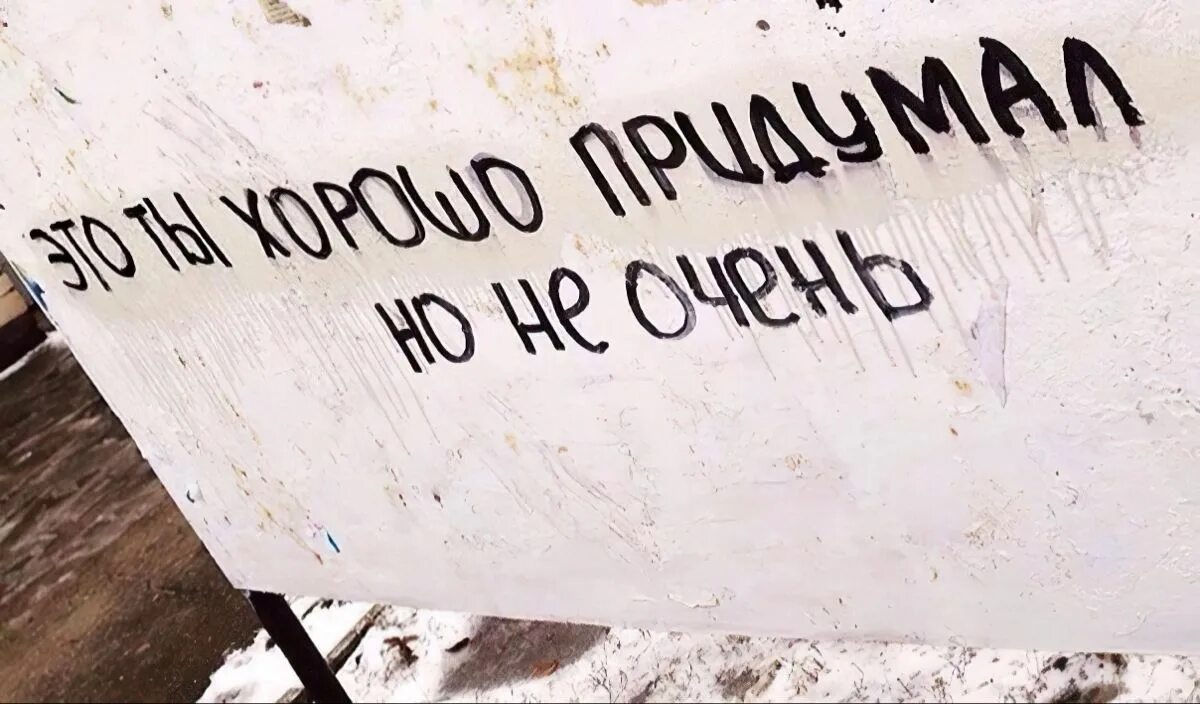 ЭТО ТЫ ХОРОШО ПРИДУМАЛ
НО НЕ ОЧЕНЬ